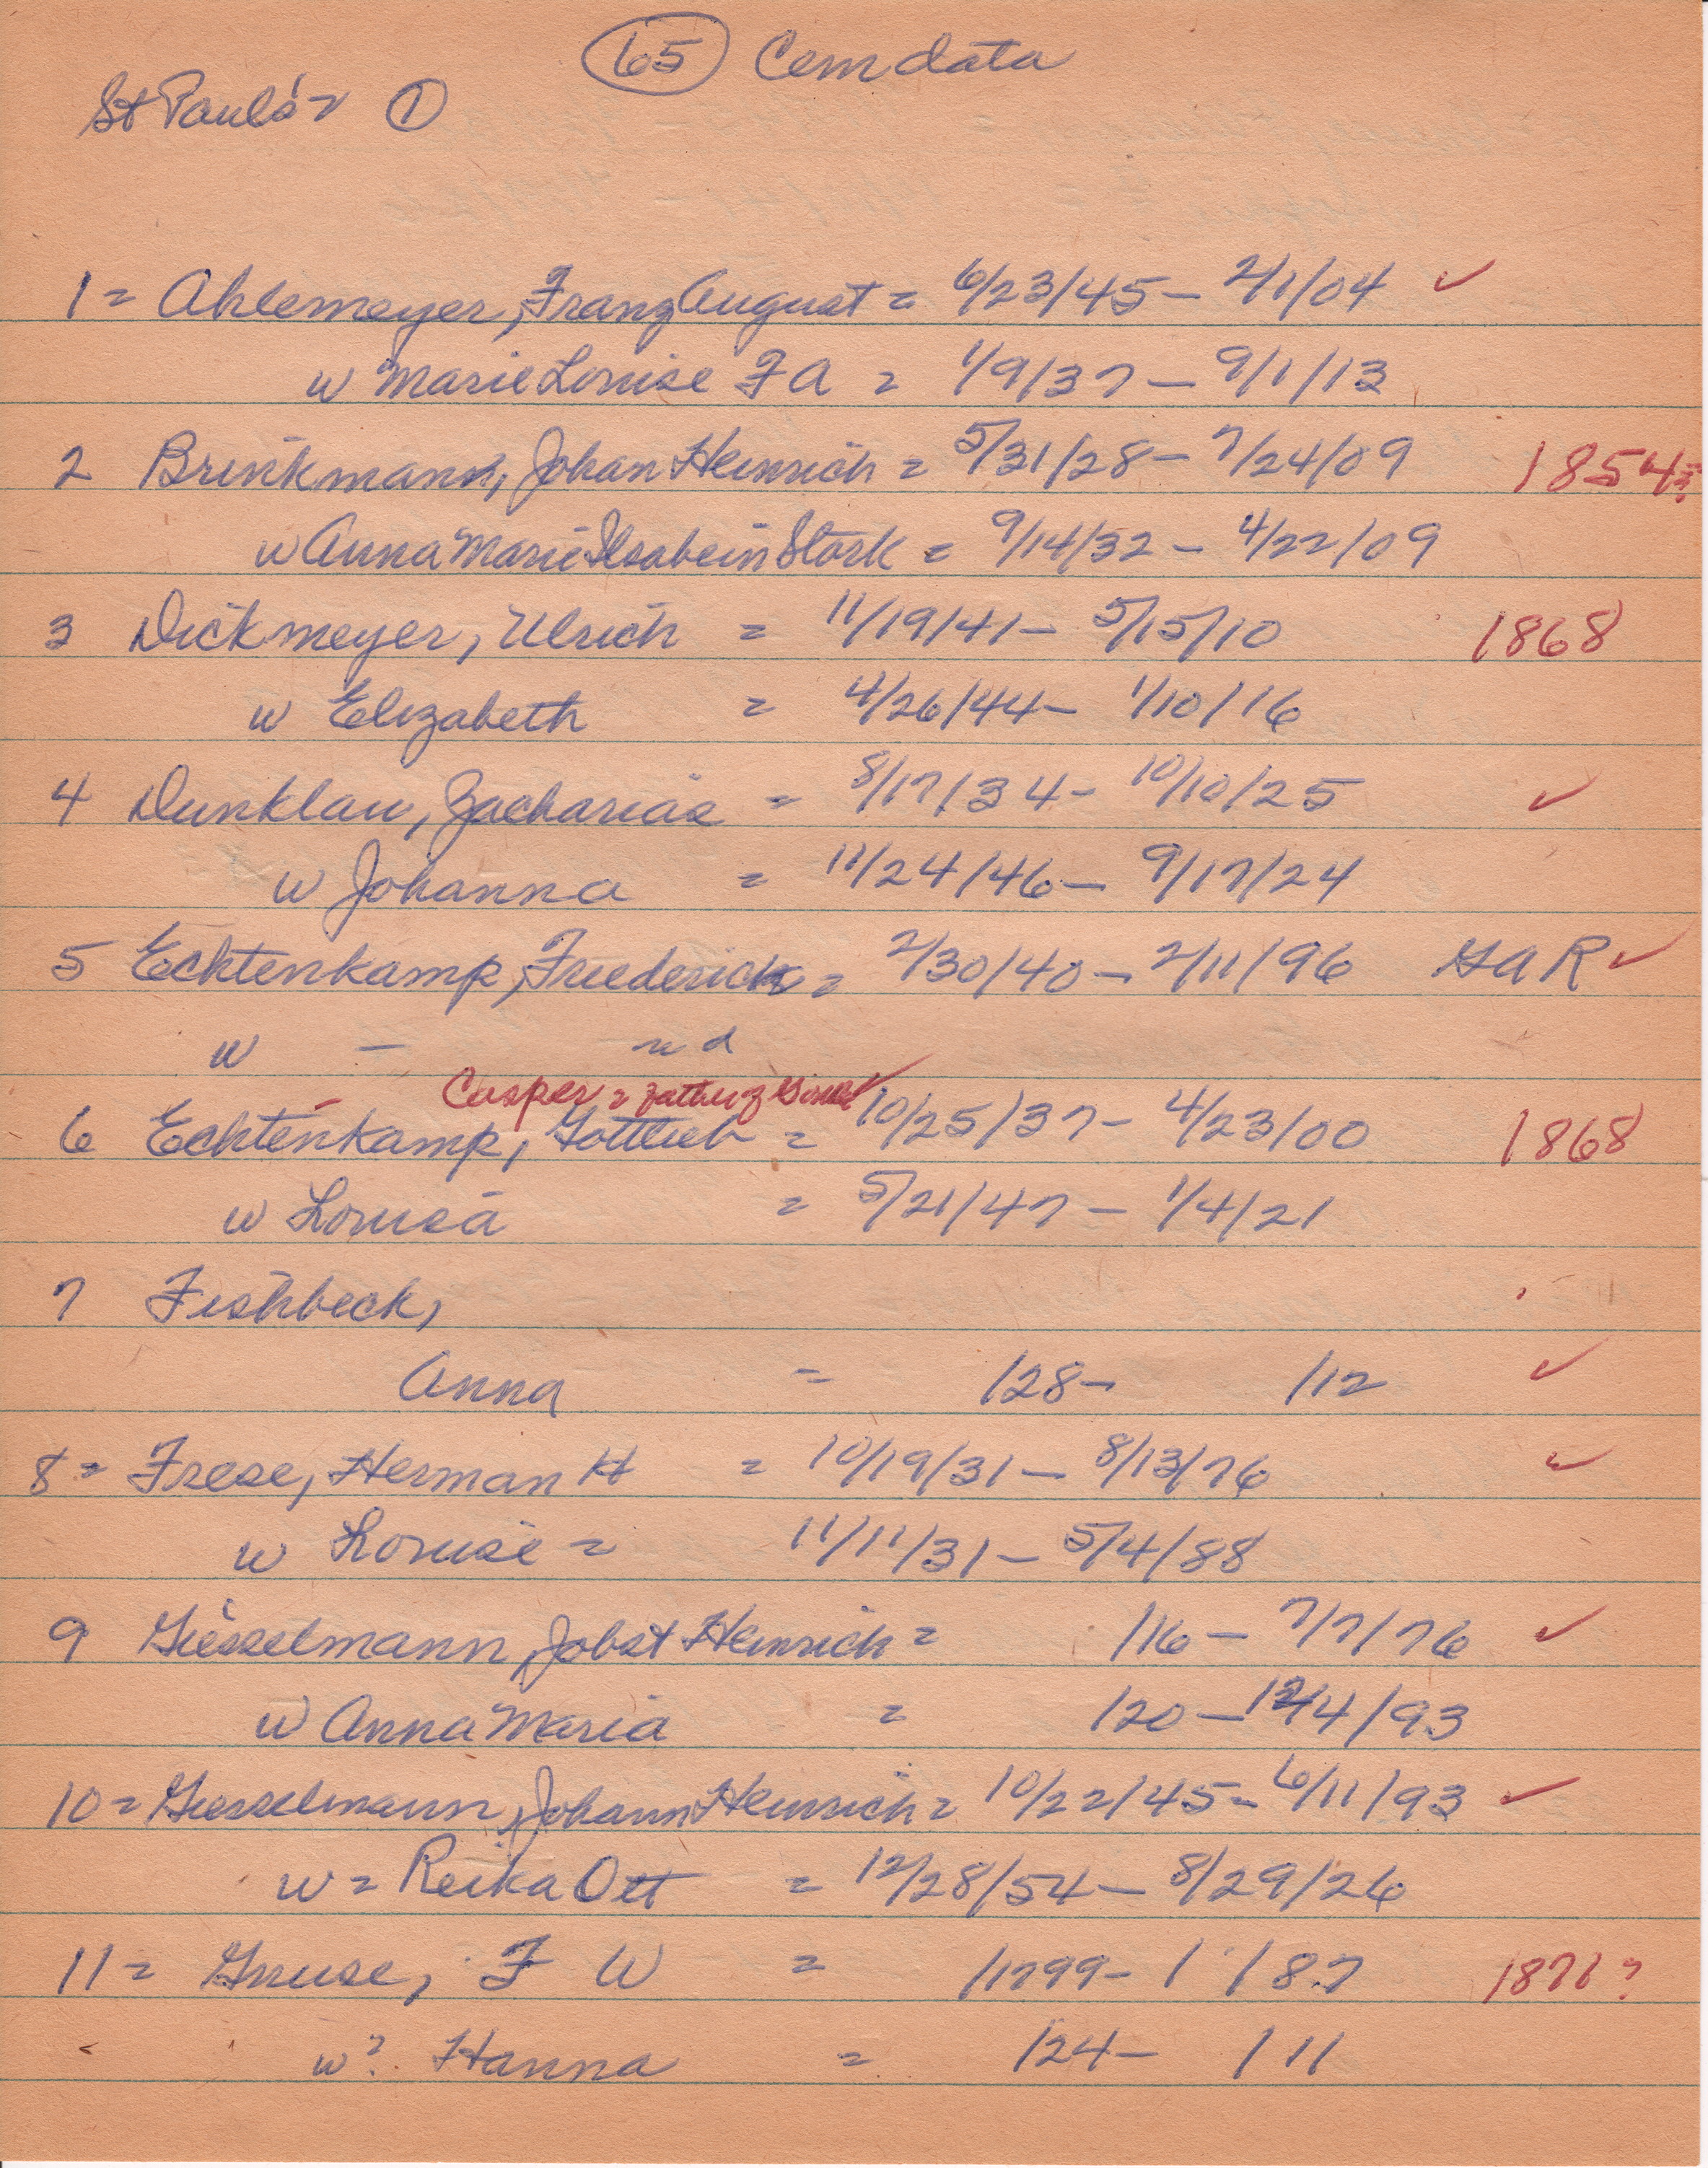 65 Cem data
St Paul's = 1
1 = Ahlemeyer, Franz August = 6/23/45 - 2/1/04 ✓
w Marie Louise F A = 1/9/37 - 9/1/13
2 Brinkmann, Johan Heinrich = 5/31/28 - 7/24/09 1854?
w Anna Marie Ilsabein Stork = 9/14/32 - 4/22/09
3 Dickmeyer, Ulrich = 11/19/41 - 5/15/10 1868
w Elizabeth = 4/26/44 - 1/10/16
4 Dunklau, Zacharias = 8/17/34 - 10/10/25 ✓
w Johanna = 11/24/46 - 9/17/24
5 Echtenkamp, Friederich = 2/30/40 - 2/11/96 GAR ✓
w - nd
Casper = father of ✓
6 Echtenkamp, Gottlieb = 10/25/37 - 4/23/00 1868
w Louisa = 5/21/47 - 1/4/21
7 Fishbeck,
Anna = /28 - /12 ✓
8 = Frese, Herman H = 10/19/31 - 8/13/76 ✓
w Louise = 11/11/31 - 5/4/88
9 Giesselmann, Jobst Heinrich = /16 - 7/7/76 ✓
w Anna Maria = /20 - 12/4/93
10 = Giesselmann, Johann Heinrich = 10/22/45 - 6/11/93 ✓
w = Reika Ott = 12/28/54 - 8/29/26
11 = Gruse, F W = /1799 - / /87 1871?
w? Hanna = /24 - /11